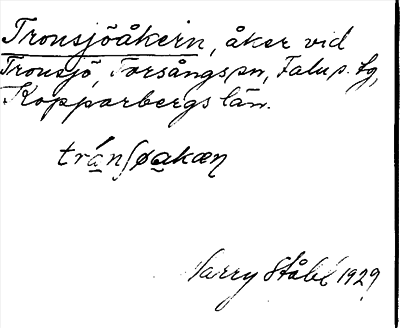 Tronsjöåkern, åker vid
Tronsjö, Torsångs sn, Falu s. tg,
Kopparbergs län.
trá̱nʃøa̱kæɳ
Harry Ståhl 1929